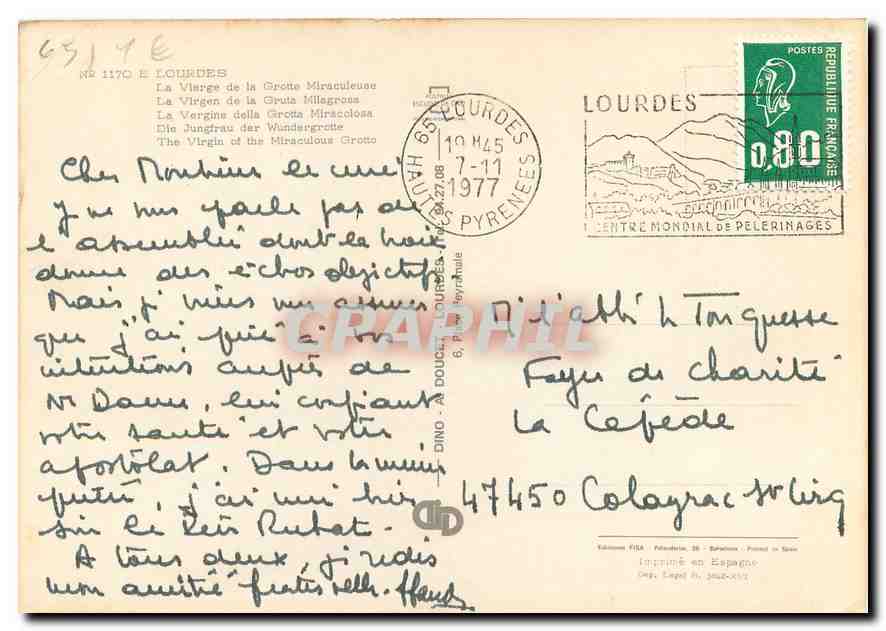 Nº 1170 E LOURDES
La Vierge de la Grotte Miraculeuse
La Virgen de la Gruta Milagrosa
La Vergine della Grotta Miracolosa
Die Jungfrau der Wundergrotte
The Virgin of the Miraculous Grotto
65 LOURDES
19 H 45
7-11
1977
HAUTES PYRENEES
LOURDES
CENTRE MONDIAL DE PELERINAGES
POSTES
REPUBLIQUE FRANÇAISE
0,80
Cher Monsieur le curé
Je ne vous parle pas de
l'assemblée dont la voix
donne des échos objectifs.
Mais je viens vous assurer
que j'ai prié à vos
intentions auprès de
N. Dame, lui confiant
votre santé et votre
apostolat. Dans la même
prière, j'ai mis
le Père Rubat.
A tous deux, je redis
mon amitié fraternelle.
DINO - A. DOUCET LOURDES - 94.27.08
6, Peyramale
CPARPHIL
M l'abbé Le Tonquesse
Foyer de Charité
La Cépède
47450 Colayrac St Cirq
Ediciones FISA - Palaudarias, 26 - Barcelona - Printed in Spain
Imprimé en Espagne
Dep. Legal B.